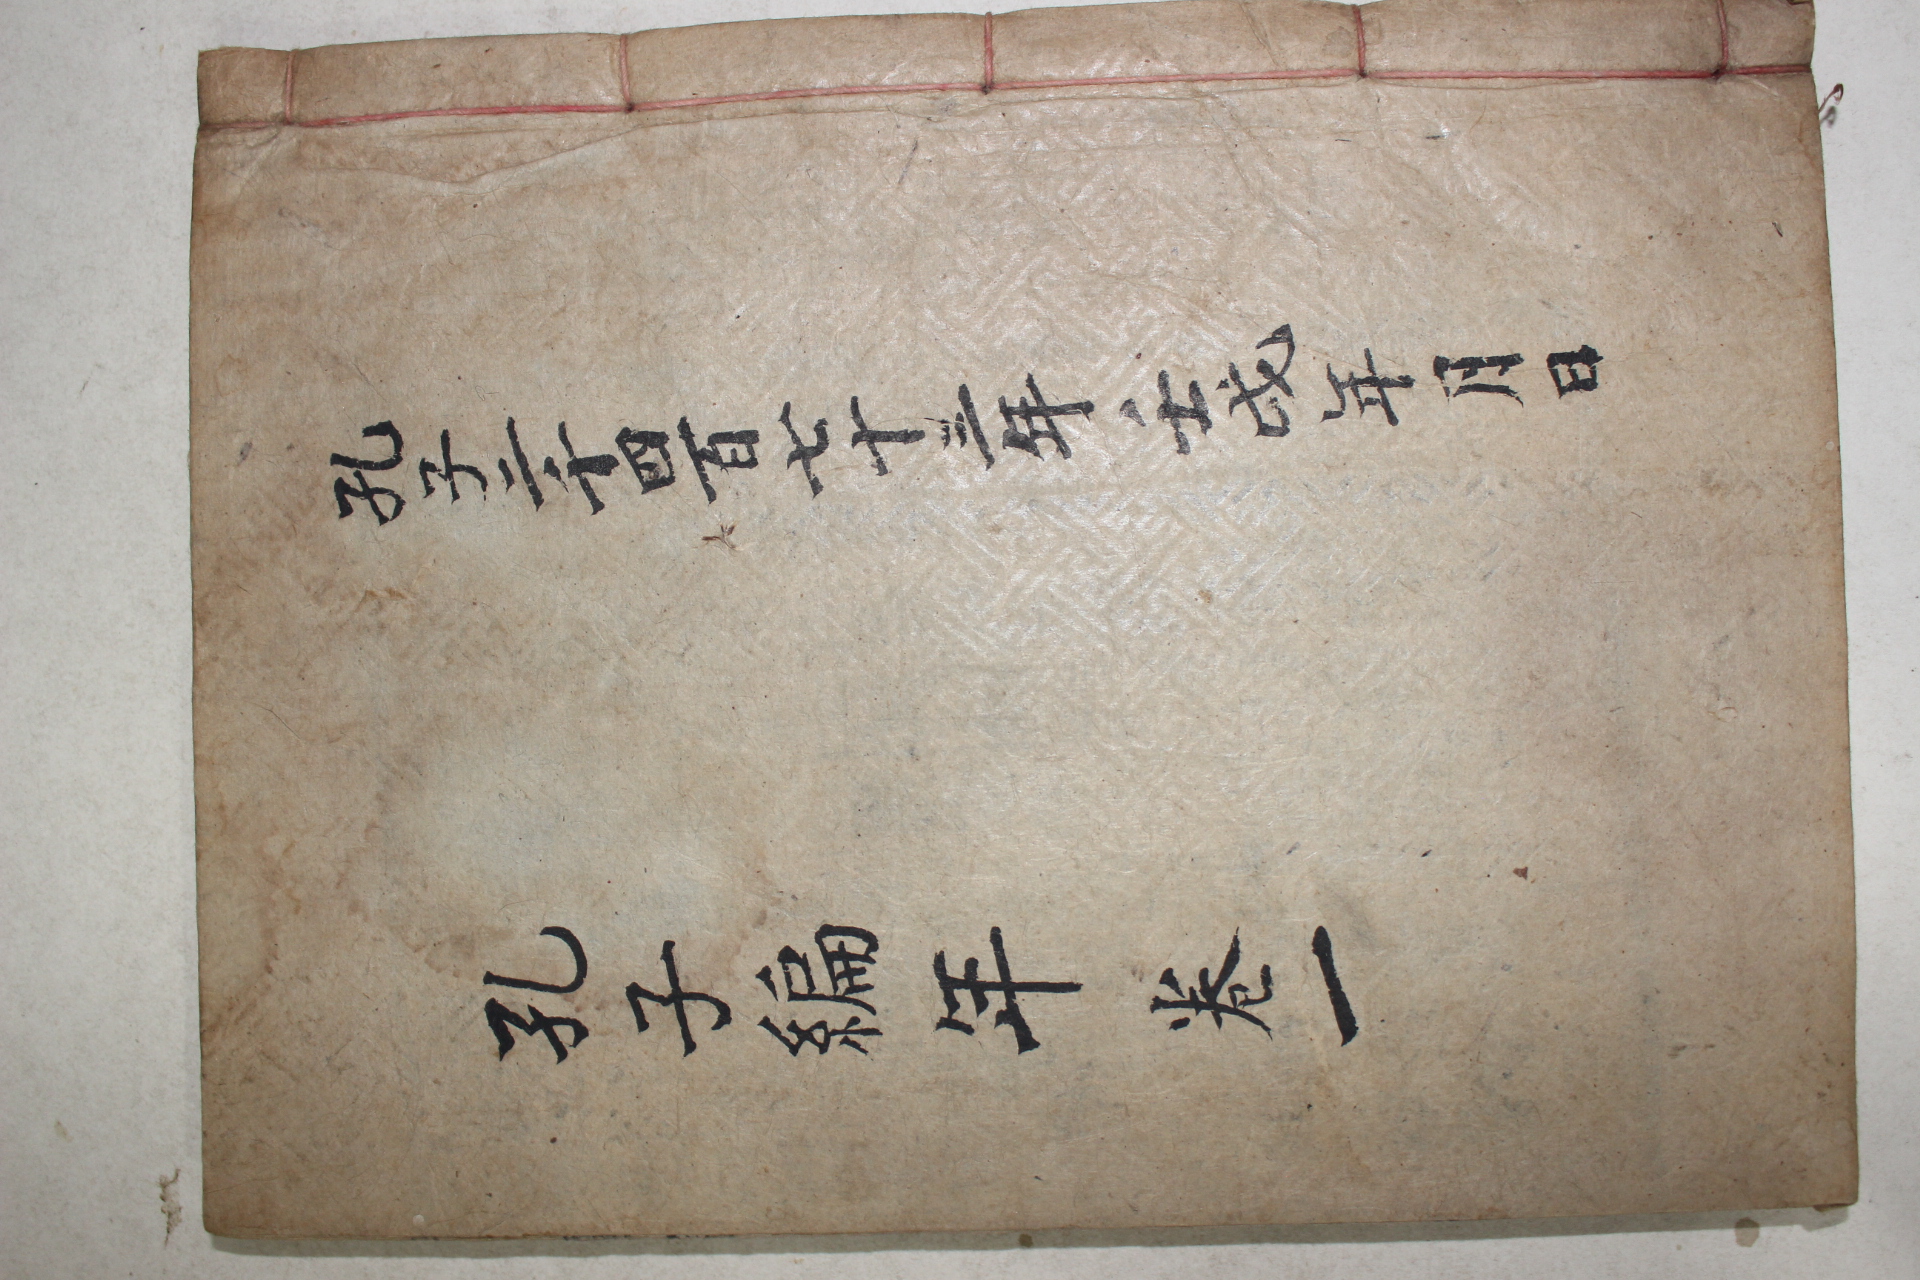 孔子二千四百七十三年壬戌年月日
孔子編年卷一